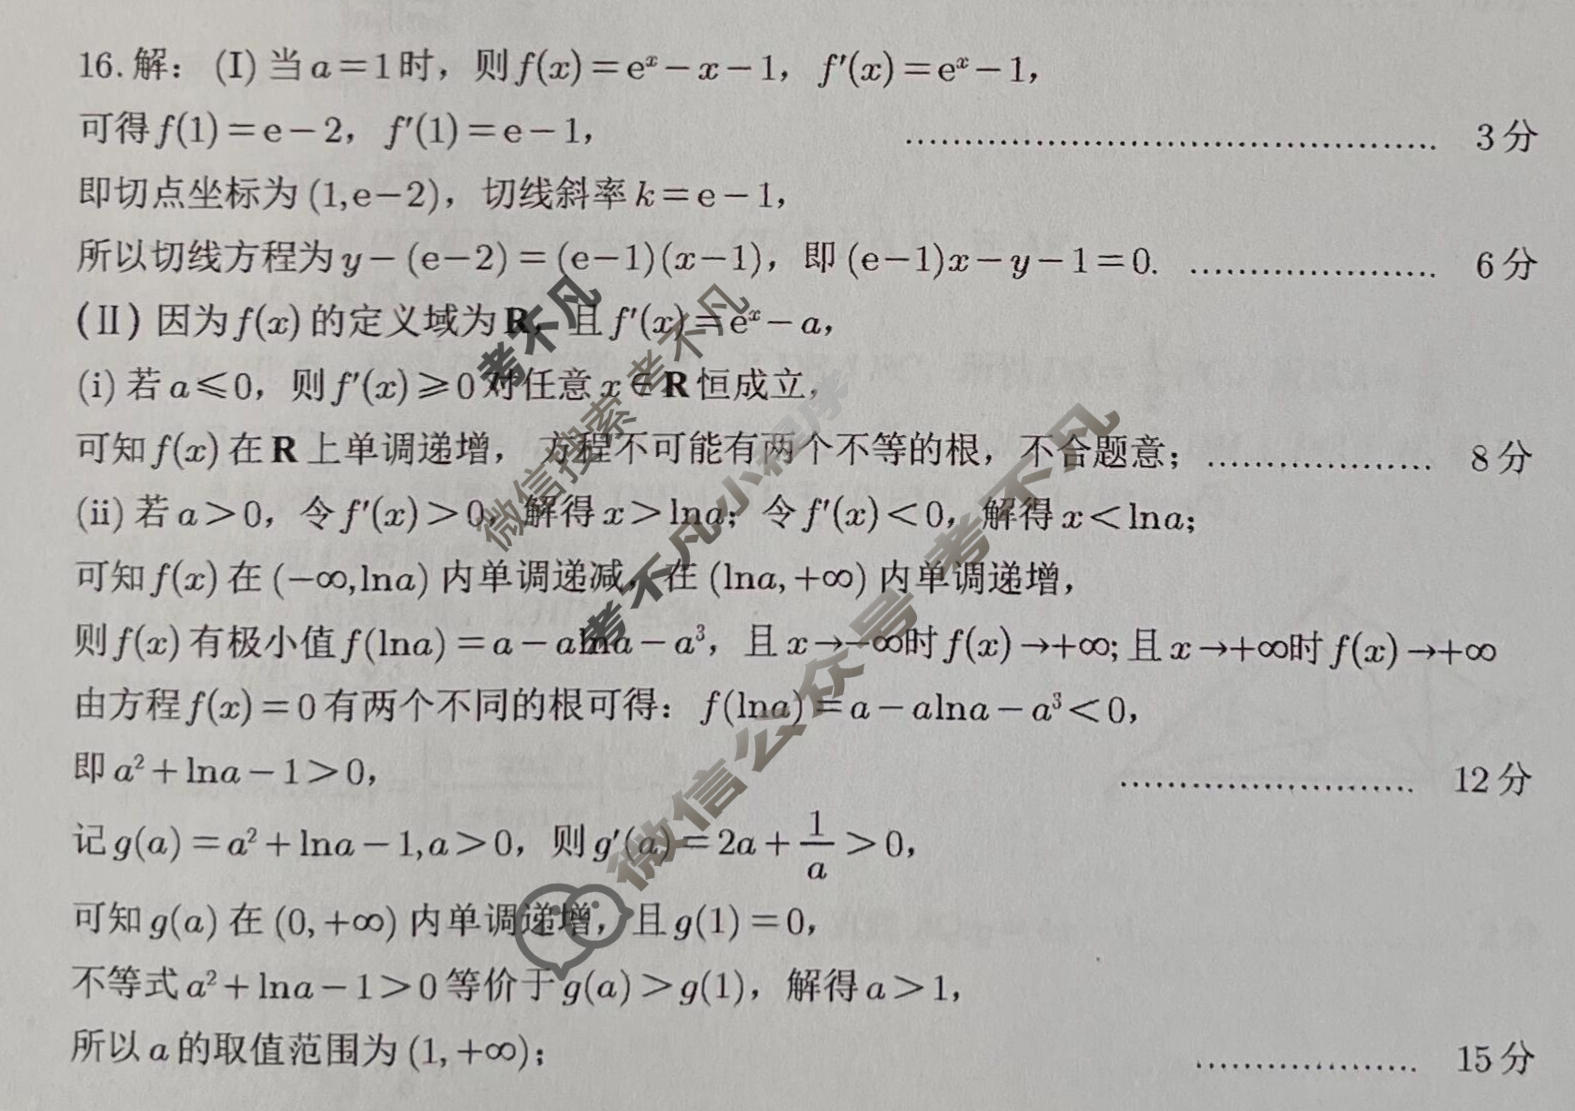 16. 解：(I) 当 a=1 时，则 f(x)=eˣ−x−1，f′(x)=eˣ−1，
可得 f(1)=e−2，f′(1)=e−1， ………………………………… 3 分
即切点坐标为 (1,e−2)，切线斜率 k=e−1，
所以切线方程为 y−(e−2)=(e−1)(x−1)，即 (e−1)x−y−1=0. ………………… 6 分
(II) 因为 f(x) 的定义域为 R，且 f′(x)=eˣ−a，
(i) 若 a⩽0，则 f′(x)⩾0 对任意 x∈R 恒成立，
可知 f(x) 在 R 上单调递增，方程不可能有两个不等的根，不合题意；………………… 8 分
(ii) 若 a>0，令 f′(x)>0，解得 x>lna；令 f′(x)<0，解得 x<lna；
可知 f(x) 在 (−∞,lna) 内单调递减，在 (lna,+∞) 内单调递增，
则 f(x) 有极小值 f(lna)=a−alna−a³，且 x→−∞时 f(x)→+∞; 且 x→+∞时 f(x)→+∞
由方程 f(x)=0 有两个不同的根可得：f(lna)=a−alna−a³<0，
即 a²+lna−1>0， ………………… 12 分
记 g(a)=a²+lna−1,a>0，则 g′(a)=2a+1/a>0，
可知 g(a) 在 (0,+∞) 内单调递增，且 g(1)=0，
不等式 a²+lna−1>0 等价于 g(a)>g(1)，解得 a>1，
所以 a 的取值范围为 (1,+∞)； ………………… 15 分
考不凡
微信搜索 考不凡
考不凡小程序
微信公众号 考不凡